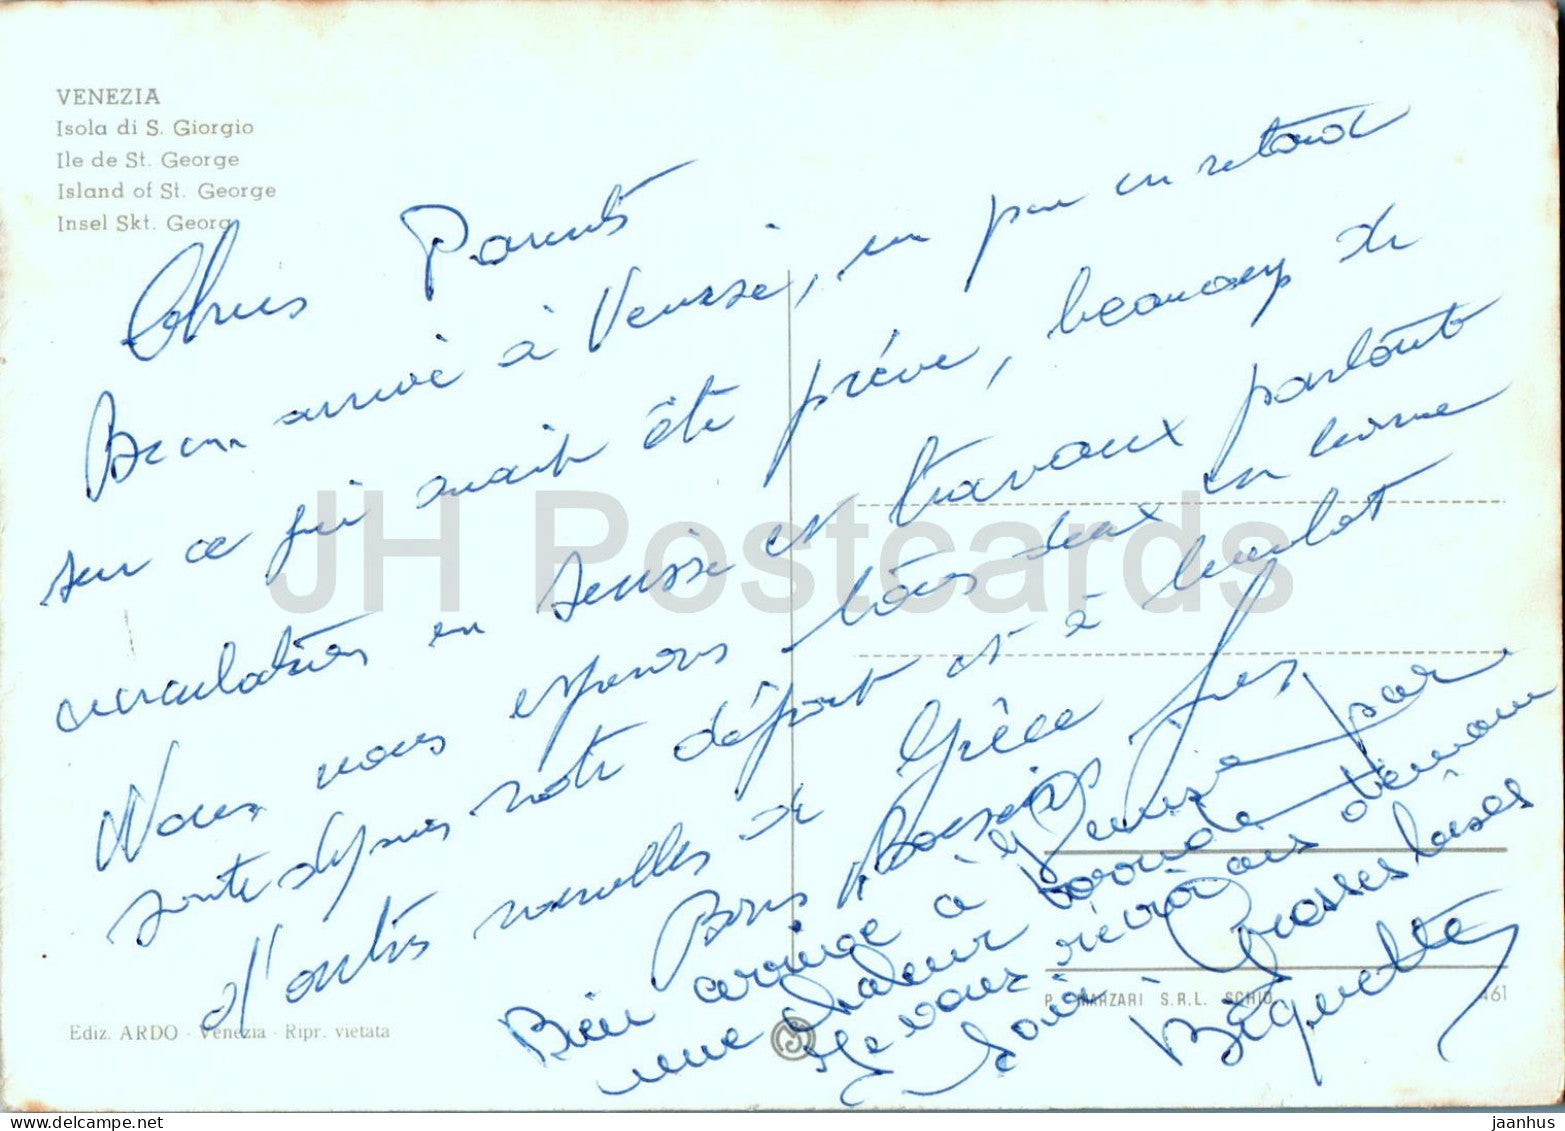 VENEZIA
Isola di S. Giorgio
Ile de St. George
Island of St. George
Insel Skt. Georg
Chers Parents
Bien arrivé à Venise, un peu en retard
sur ce qui avait été prévu, beaucoup de
circulation en Suisse et travaux partout
Nous vous espérons tous deux en bonne
santé depuis notre départ et à bientot
d'autres nouvelles de Grèce
Bons Baisers
Bien arrivée à Venise par
une chaleur
Je vous
Grosses bises
Biquette
JH Postcards
P. MARZARI S.R.L. SCHIO
461
Ediz. ARDO - Venezia - Ripr. vietata
jaanhus